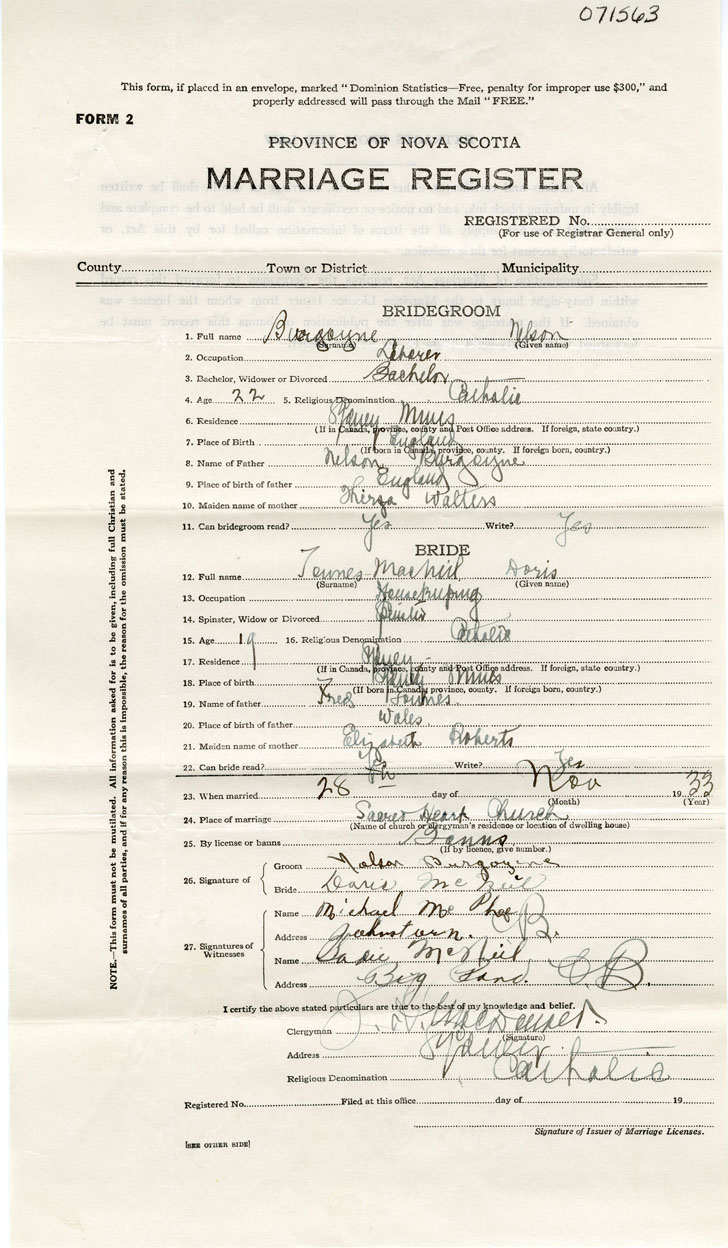 071563
This form, if placed in an envelope, marked "Dominion Statistics—Free, penalty for improper use $300," and
properly addressed will pass through the Mail "FREE."
FORM 2
PROVINCE OF NOVA SCOTIA
MARRIAGE REGISTER
REGISTERED No.
(For use of Registrar General only)
County Town or District Municipality
BRIDEGROOM
1. Full name Burgoyne Nelson
(Surname) (Given name)
2. Occupation Laborer
3. Bachelor, Widower or Divorced Bachelor
4. Age 22 5. Religious Denomination Catholic
6. Residence Sydney Mines
(If in Canada, province, county and Post Office address. If foreign, state country.)
7. Place of Birth England
(If born in Canada, province, county. If foreign born, country.)
8. Name of Father Nelson Burgoyne
9. Place of birth of father England
10. Maiden name of mother Thirza Walters
11. Can bridegroom read? Yes Write? Yes
BRIDE
12. Full name Townes MacNeil Doris
(Surname) (Given name)
13. Occupation Housekeeping
14. Spinster, Widow or Divorced Spinster
15. Age 19 16. Religious Denomination Catholic
17. Residence Sydney
(If in Canada, province, county and Post Office address. If foreign, state country.)
18. Place of birth Sydney Mines
(If born in Canada, province, county. If foreign born, country.)
19. Name of father Fred Townes
20. Place of birth of father Wales
21. Maiden name of mother Elizabeth Roberts
22. Can bride read? Yes Write? Yes
23. When married 28th day of Nov 1933
(Month) (Year)
24. Place of marriage Sacred Heart Church
(Name of church or clergyman's residence or location of dwelling house)
25. By license or banns Banns
(If by licence, give number.)
26. Signature of Groom Nelson Burgoyne
Bride Doris McNeil
27. Signatures of Witnesses
Name Michael McPhee
Address Johnstown. C.B.
Name Sadie McNeil
Address Big Pond. C.B.
I certify the above stated particulars are true to the best of my knowledge and belief.
Clergyman
(Signature)
Address Sydney
Religious Denomination Catholic
Registered No. Filed at this office day of 19
Signature of Issuer of Marriage Licenses.
[SEE OTHER SIDE]
NOTE.—This form must not be mutilated. All information asked for is to be given, including full Christian and
surnames of all parties, and if for any reason this is impossible, the reason for the omission must be stated.